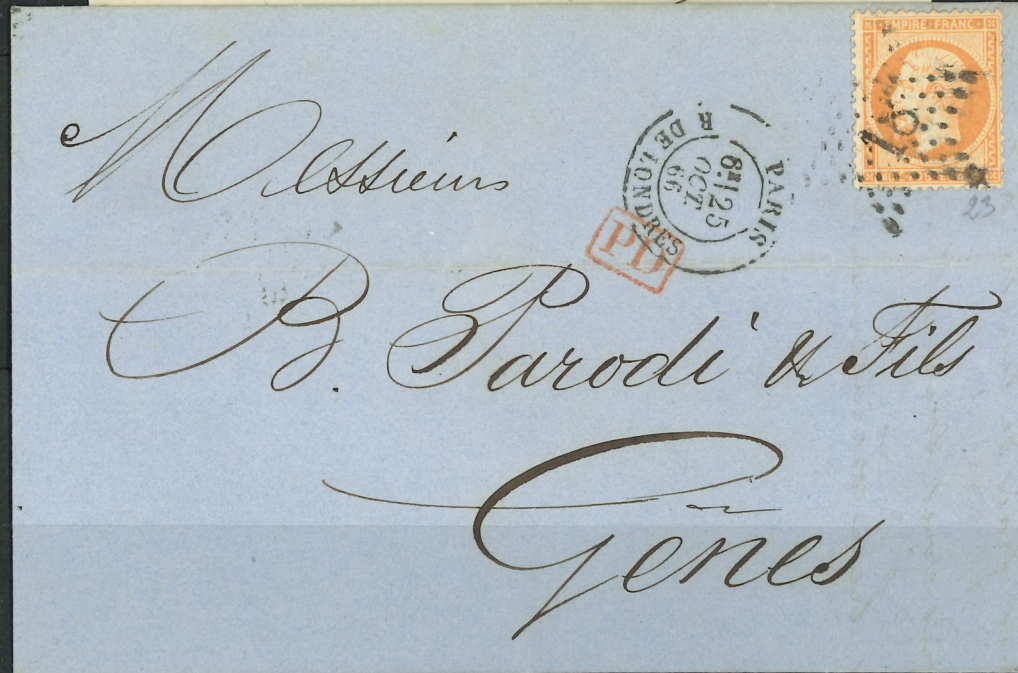 EMPIRE FRANC
18
23
PARIS
R DE LONDRES
25
OCT.
66
PD
Messieurs
B. Parodi & Fils
Gênes